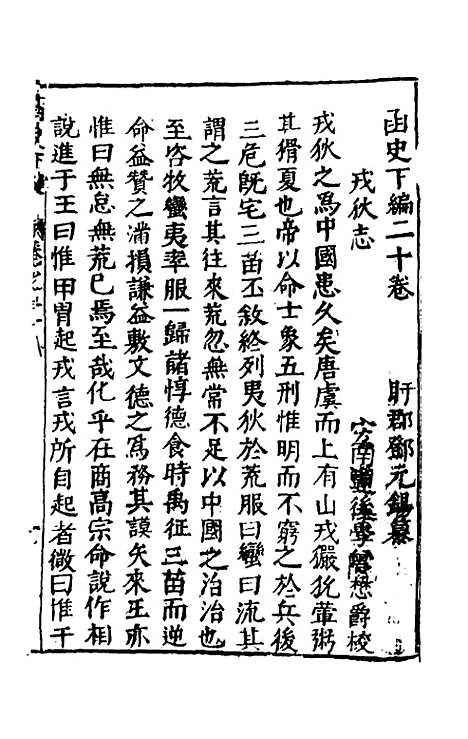 函史下編二十卷
盱郡鄧元錫纂
戎狄志
南豐後學 懋爵校
戎狄之爲中國患久矣唐虞而上有山戎儼狁葷粥
其猾夏也帝以命士象五刑惟明而不窮之於兵後
三危旣宅三苗丕敘終列夷狄於荒服曰蠻曰流其
謂之荒言其往來荒忽無常不足以中國之治治也
至咨牧蠻夷率服一歸諸惇德食時禹征三苗而逆
命益贊之滿損謙益敷文德之爲務其謨矢來王亦
惟曰無怠無荒已焉至哉化乎在商高宗命說作相
說進于王曰惟甲冑起戎言戎所自起者微曰惟干